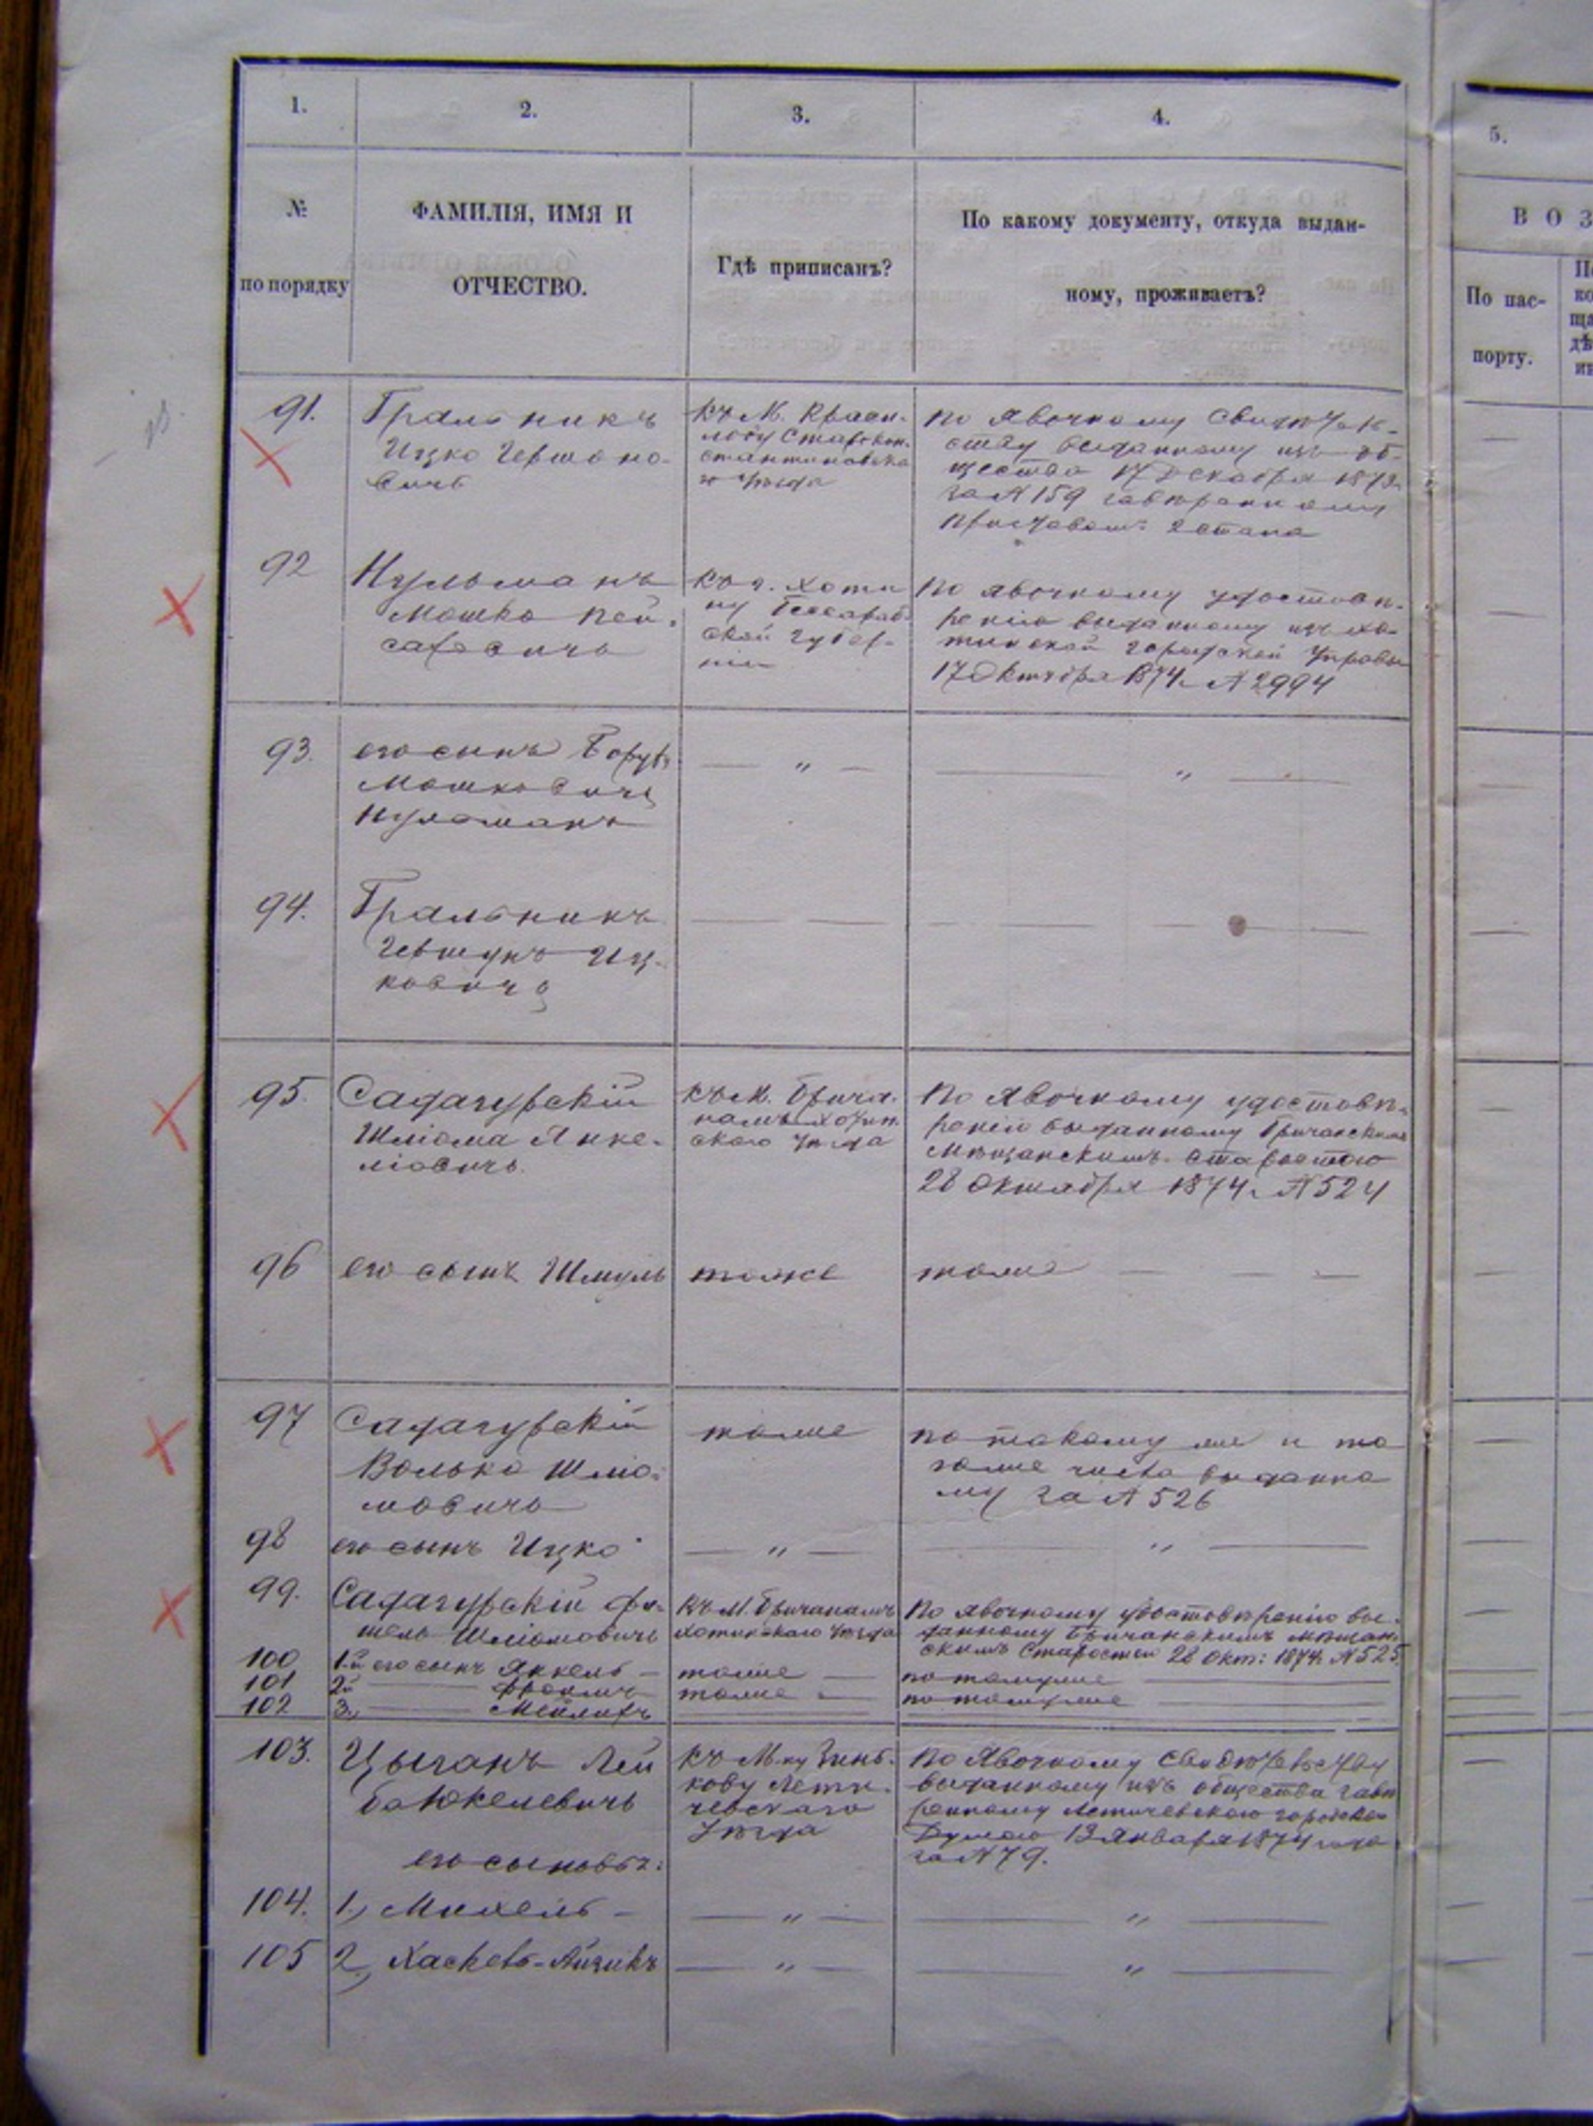 1. 2. 3. 4. 5.
№
по порядку
ФАМИЛІЯ, ИМЯ И
ОТЧЕСТВО.
Гдѣ приписанъ?
По какому документу, откуда выдан-
ному, проживаетъ?
ВОЗ
По пас-
порту.
91.
Гральникъ
Ицко Гершоно-
вичъ
Къ М. Краси-
лову Старокон-
стантиновска
го Уѣзда
По явочному свидѣтель-
ству выданному изъ об-
щества 17 Декабря 187
за № 159 завѣренному
Приставомъ 2 стана
92
Нульманъ
Мошко Пей-
саховичъ
Къ г. Хоти
ну Бессараб-
ской Губер-
ніи
По явочному удостовѣ-
ренію выданному изъ Хо-
тинской городской Управы
17 Октября 1874 г. № 2994
93.
его сынъ Борухъ
Мошковичъ
Нульманъ
— „ —
— „ —
94.
Гральникъ
Гершунъ Иц-
ковичъ
95.
Садагурскій
Шліома Янке-
ліовичъ
Къ М. Брича-
намъ Хотин-
скаго Уѣзда
По Явочному удостовѣ-
ренію выданному Бричанскимъ
Мѣщанскимъ старостою
28 Октября 1874 г. № 524
96
его сынъ Шмуль
тоже
тоже
97
Садагурскій
Волько Шліо-
мовичъ
тоже
по такому же и то
гоже числа выданно
му за № 526
98
его сынъ Ицко
— „ —
— „ —
99.
Садагурскій Фи-
шель Шліомовичъ
Къ М. Бричанамъ
Хотинскаго Уѣзда
По явочному удостовѣренію вы-
данному Бричанскимъ мѣщан-
скимъ Старостой 28 Окт: 1874 г. № 525.
100
1.й его сынъ Янкель —
тоже —
по томуже
101
2й — Фроимъ
тоже —
по томуже
102
3. — Мейлихъ
103.
Цыганъ Лей
ба Юкелевичъ
Къ М-ку Зинь-
кову Лети-
чевскаго
Уѣзда
По Явочному свидѣтельству
выданному изъ общества завѣ
ренному Летичевскою городскою
Думою 13 Января 1874 года
за № 79.
его сыновья:
104.
1., Михель —
— „ —
— „ —
105
2., Хаскель-Айзикъ
— „ —
— „ —